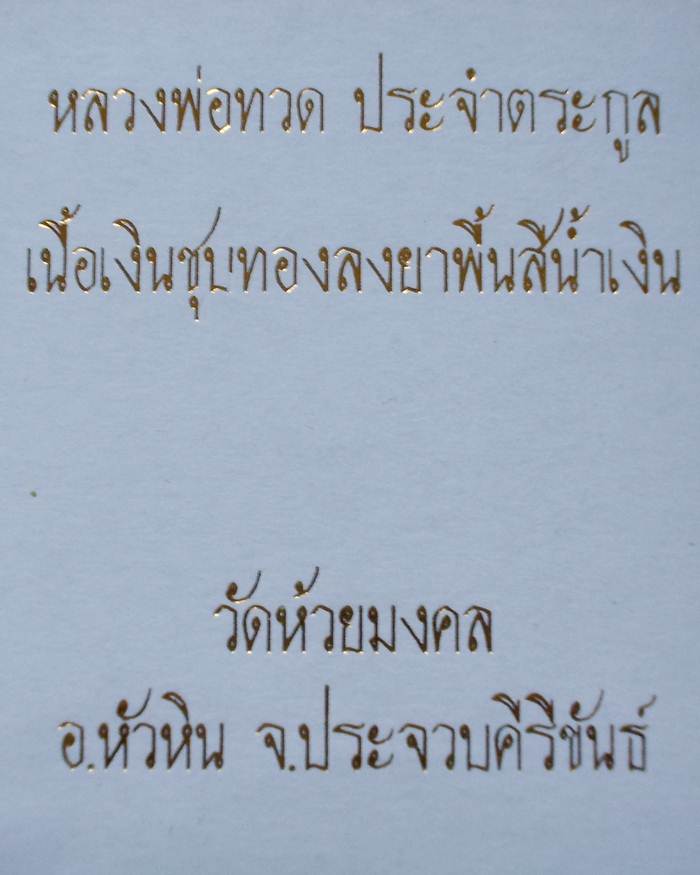 หลวงพ่อทวด ประจำตระกูล
เนื้อเงินชุบทองลงยาพื้นสีน้ำเงิน
วัดห้วยมงคล
อ.หัวหิน จ.ประจวบคีรีขันธ์